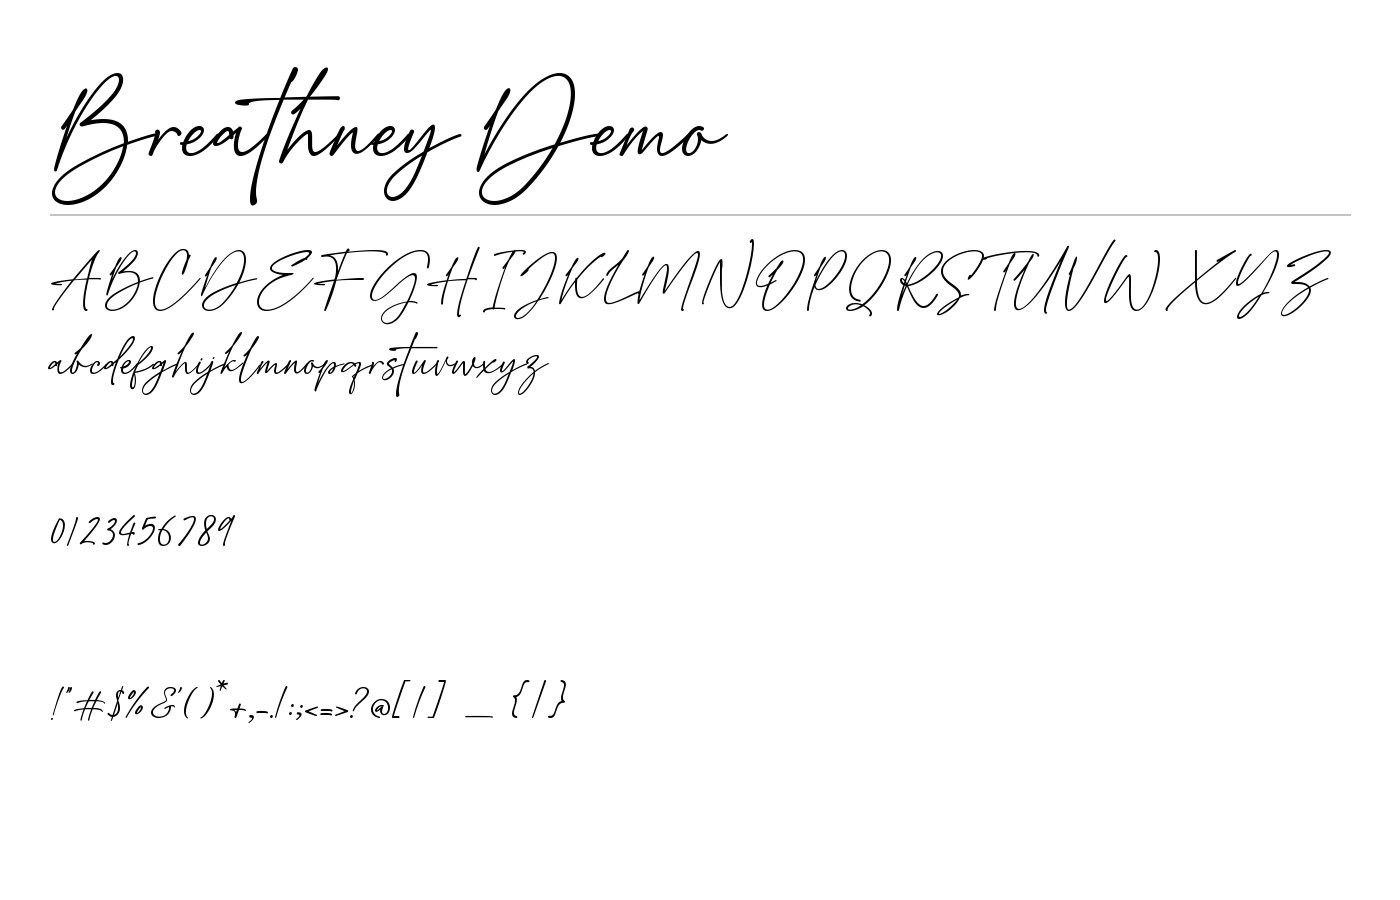 Breathney Demo
ABCDEFGHIJKLMNOPQRSTUVWXYZ
abcdefghijklmnopqrstuvwxyz
0123456789
!"#$%&'()*+,-./:;<=>?@[\] _ {|}